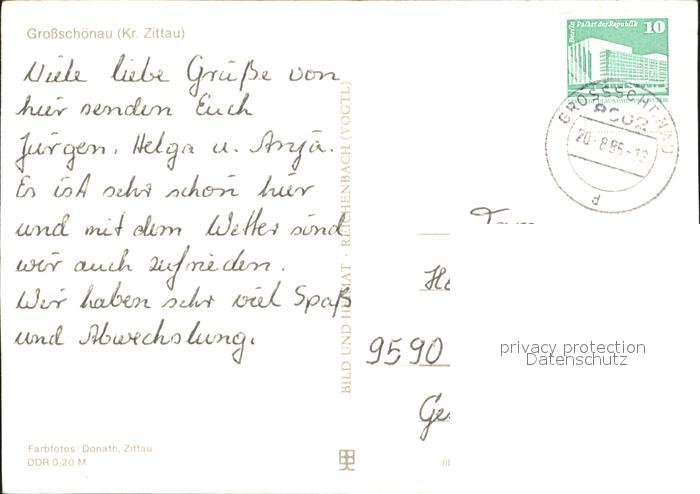 Großschönau (Kr. Zittau)
Viele liebe Grüße von
hier senden Euch
Jürgen, Helga u. Anja.
Es ist sehr schön hier
und mit dem Wetter sind
wir auch zufrieden.
Wir haben sehr viel Spaß
und Abwechslung.
Farbfotos: Donath, Zittau
DDR 0,20 M
BILD UND HEIMAT · REICHENBACH (VOGTL)
Berlin Palast der Republik 10
GROSSSCHÖNAU
8802
20.-8.85-18
d
Fam
9590
Ge
privacy protection
Datenschutz